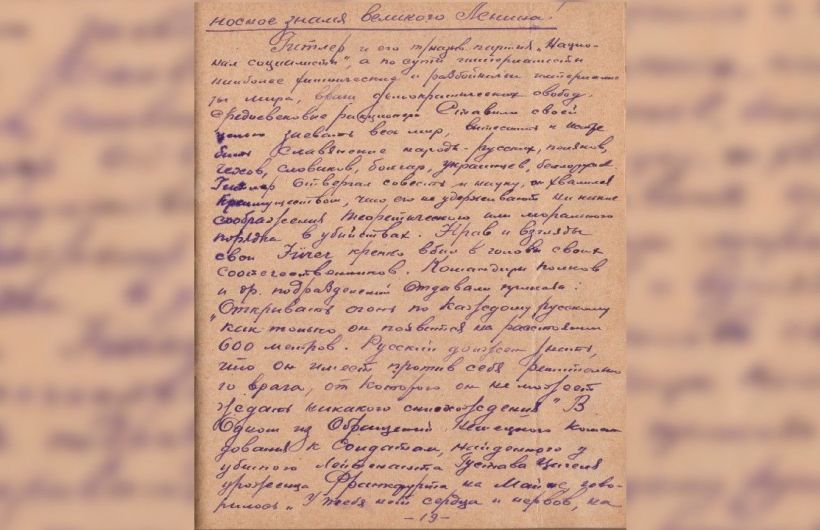 носное знамя великого Ленина!
Гитлер и его партия „Нацио-
нал социалисты", а по сути империалисты
наиболее хищнические и разбойничьи империалис-
ты мира, враги демократических свобод.
Средневековые реакционеры Ставили своей
целью завоевать весь мир, вытеснить и истре
бить Славянские народы - русских, поляков,
чехов, словаков, болгар, украинцев, белоруссов
Гитлер отвергал совесть и науку, он хвалился
преимуществом, что его не удерживают ни какие
соображения теоретического или морального
порядка в убийствах. Нрав и взгляды
свои Fürer крепко вбил в головы своих
соотечественников. Командиры полков
и др. подразделений отдавали приказы:
"Открывать огонь по каждому русскому
как только он появится на расстоянии
600 метров. Русский должен знать,
что он имеет против себя решительно
го врага, от которого он не может
ждать никакого снисхождения" В
Одном из Обращений Немецкого коман
дования к Солдатам, найденного у
убитого Лейтенанта Густава
уроженца Франкфурта на Майне, гово-
рилось „У тебя нет сердца и нервов, на
- 19 -